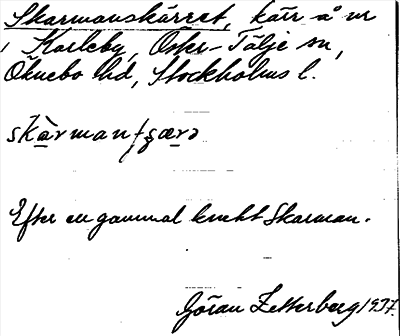 Skarmanskärret, kärr å nr
1 Karleby, Öster-Tälje sn,
Öknebo hd, Stockholms l.
skàrmanʃæra
Efter en gammal knekt Skarman.
Göran Zetterberg 1937.